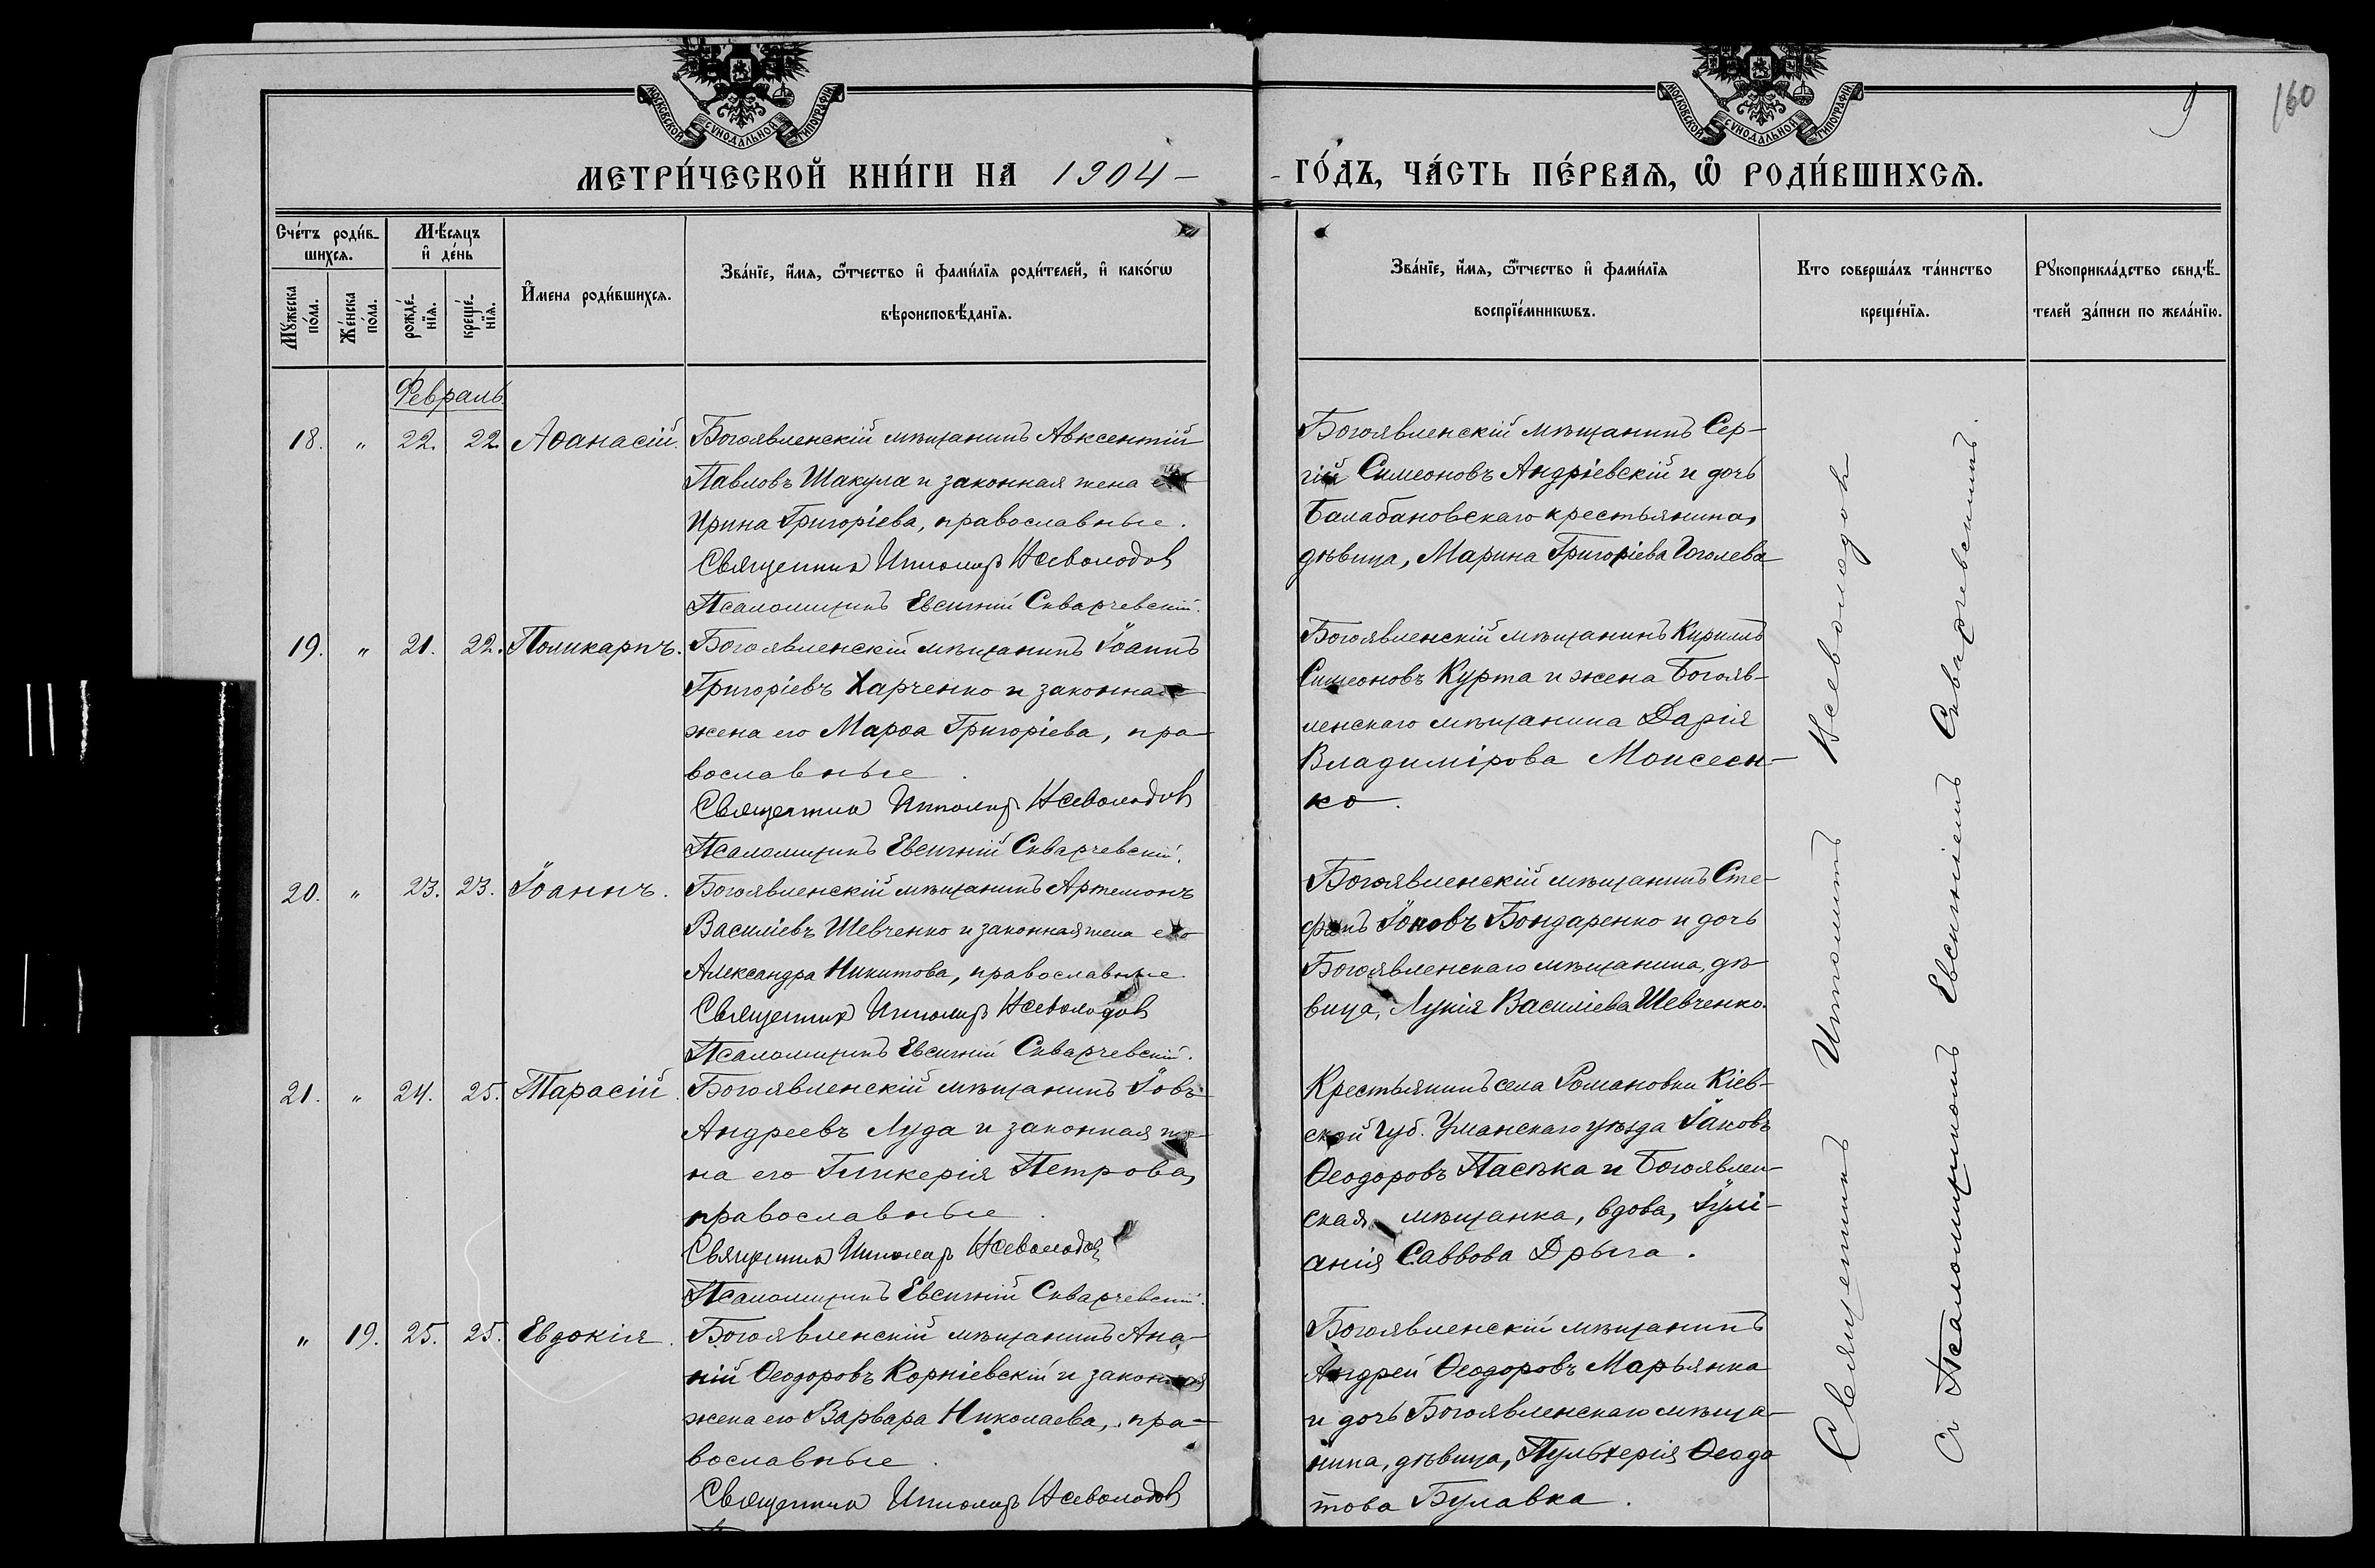 МОСКОВСКОЙ СУНОДАЛЬНОЙ ТИПОГРАФІИ
МОСКОВСКОЙ СУНОДАЛЬНОЙ ТИПОГРАФІИ
9
160
МЕТРИ́ЧЕСКОЙ КНИ́ГИ НА 1904 -
- ГО́ДЪ, ЧА́СТЬ ПЕ́РВАѦ, Ѡ҆ РОДИ́ВШИХСѦ.
Сче́тъ роди́в-
шихсѧ.
Мꙋ́жеска
по́ла.
Же́нска
по́ла.
Мѣ́сѧцъ
и҆ де́нь
рожде́-
нїѧ.
креще́-
нїѧ.
И҆мена роди́вшихсѧ.
Зва́нїе, и҆́мѧ, ѻ҆́тчество и҆ фами́лїѧ роди́телей, и҆ како́гѡ
вѣроисповѣ́данїѧ.
Зва́нїе, и҆́мѧ, ѻ҆́тчество и҆ фами́лїѧ
воспрїе́мникѡвъ.
Кто соверша́лъ та́инство
креще́нїѧ.
Рꙋкоприкла́дство свидѣ́-
телей за́писи по жела́нїю.
Февраль
18. " 22. 22. Аѳанасій.
Богоявленскій мѣщанинъ Авксентій
Павловъ Шакула и законная жена его
Ирина Григоріева, православные.
Священникъ Ипполитъ Неволодовъ
Псаломщикъ Евсигній Скварчевскій.
Богоявленскій мѣщанинъ Сер-
гій Симеоновъ Андріевскій и дочь
Балабановскаго крестьянина,
дѣвица, Марина Григоріева Гоголева
19. " 21. 22. Поликарпъ.
Богоявленскій мѣщанинъ Іоаннъ
Григоріевъ Харченко и законная
жена его Марѳа Григоріева, пра-
вославные.
Священникъ Ипполитъ Неволодовъ
Псаломщикъ Евсигній Скварчевскій.
Богоявленскій мѣщанинъ Кириллъ
Симеоновъ Курта и жена Богояв-
ленскаго мѣщанина Дарія
Владимірова Моисеен-
ко.
20. " 23. 23. Іоаннъ.
Богоявленскій мѣщанинъ Артемонъ
Василіевъ Шевченко и законная жена его
Александра Никитова, православные
Священникъ Ипполитъ Неволодовъ
Псаломщикъ Евсигній Скварчевскій.
Богоявленскій мѣщанинъ Сте-
фанъ Іововъ Бондаренко и дочь
Богоявленскаго мѣщанина, дѣ-
вица, Лукія Василіева Шевченко.
21. " 24. 25. Тарасій.
Богоявленскій мѣщанинъ Іовъ
Андреевъ Луда и законная же-
на его Гликерія Петрова,
православные.
Священникъ Ипполитъ Неволодовъ
Псаломщикъ Евсигній Скварчевскій.
Крестьянинъ села Романовки Кіев-
ской губ. Уманскаго уѣзда Іаковъ
Ѳеодоровъ Пасѣка и Богоявлен-
ская мѣщанка, вдова, Іулі-
анія Саввова Дрыга.
" 19. 25. 25. Евдокія.
Богоявленскій мѣщанинъ Ана-
ній Ѳеодоровъ Корніевскій и законная
жена его Варвара Николаева, пра-
вославные.
Священникъ Ипполитъ Неволодовъ
Богоявленскій мѣщанинъ
Андрей Ѳеодоровъ Марьянка
и дочь Богоявленскаго мѣща-
нина, дѣвица, Пульхерія Ѳеодо
това Булавка.
Священникъ Ипполитъ Неволодовъ
съ Псаломщикомъ Евсигніемъ Скварчевскимъ.